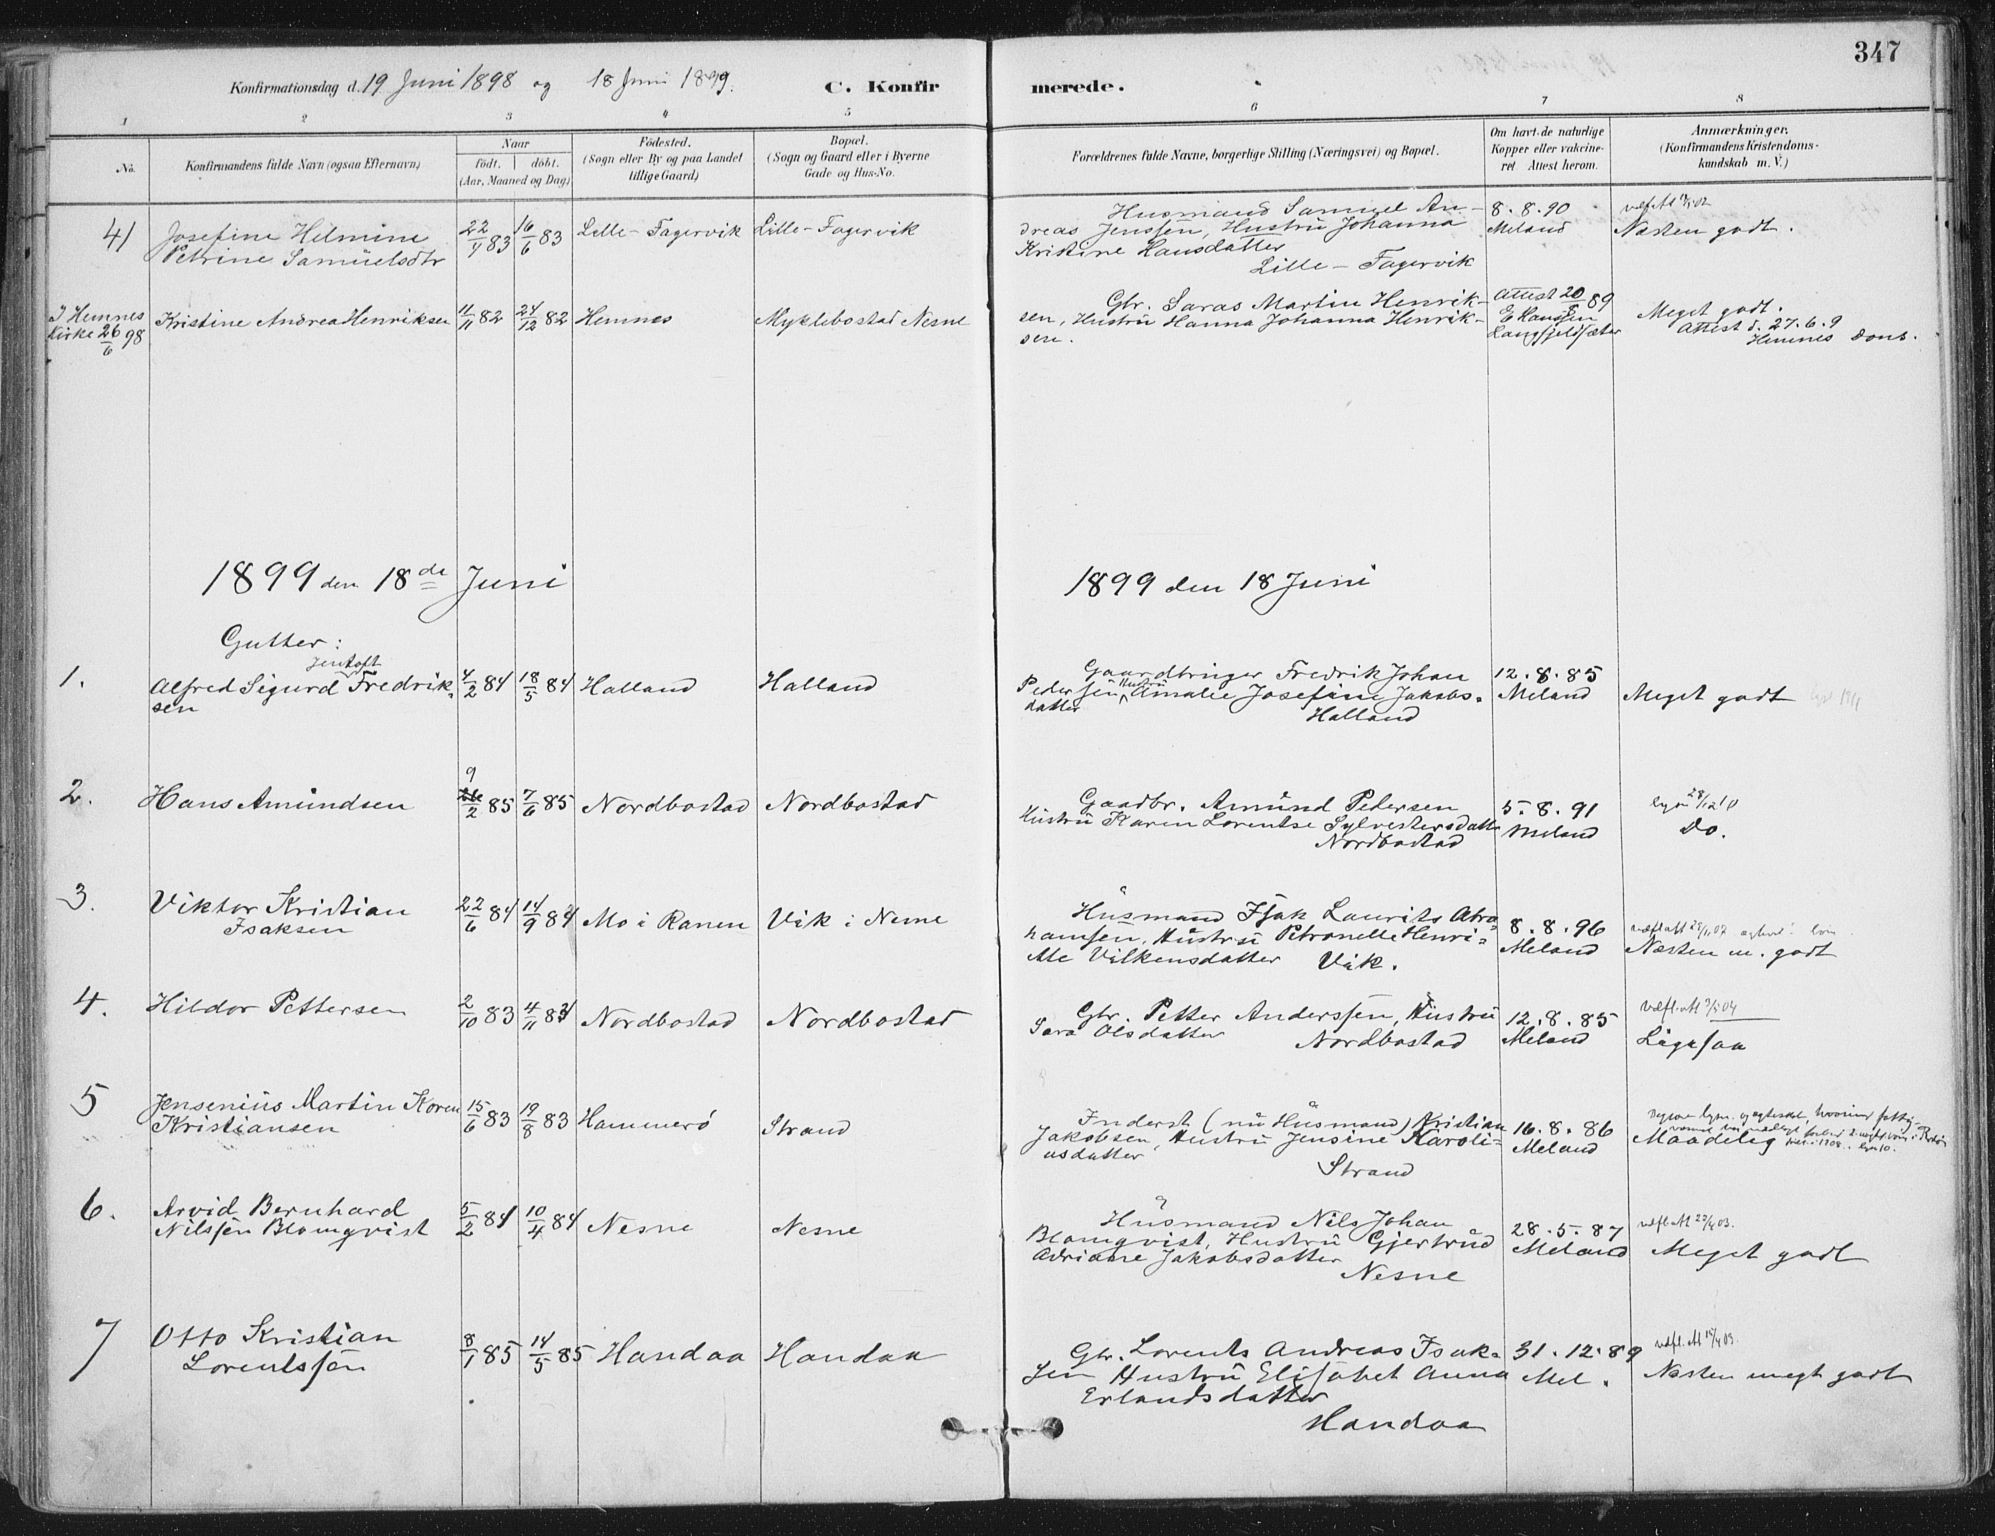 347
Konfirmationsdag d. 19 Juni 1898 og 18 Juni 1899. C. Konfirmerede.
1 2 3 4 5 6 7 8
No.
Konfirmandens fulde Navn (ogsaa Efternavn)
Naar
født. døbt.
(Aar, Maaned og Dag)
Fødested.
(Sogn eller By og paa Landet
tillige Gaard)
Bopæl.
(Sogn og Gaard eller i Byerne
Gade og Hus-No.
Forældrenes fulde Navne, borgerlige Stilling (Næringsvei) og Bopæl.
Om havt de naturlige
Kopper eller vakcine-
ret Attest herom.
Anmærkninger.
(Konfirmandens Kristendoms-
kundskab m. V.)
41 Josefine Hilmine
Petrine Samuelsdtr
22/1 83 16/6 83 Lille-Fagervik Lille-Fagervik
Husmand Samuel An-
dreas Jenssen, Hustru Johanna
Kristine Hansdatter
Lille-Fagervik
8.8.90
Meland
Næsten godt.
I Hemnes
Kirke 26/6 98
Kristine Andrea Henriksen 11/11 82 24/12 82 Hemnes Myklebostad Nesne
Gbr. Saras Martin Henrik-
sen, Hustru Hanna Johanna Henrik-
sen.
Attest 20/8 89
E Hanssen
Langfjeldsæter
Meget godt.
Attest d. 27.6.9
Hemnes Dons.
1899 den 18de Juni
1899 den 18 Juni
Gutter:
1. Alfred Sigurd Jentoft Fredrik-
sen
4/2 84 18/5 84 Halland Halland
Gaardbruger Fredrik Johan
Pedersen, Hustru Amalie Josefine Jakobs-
datter
Halland
12.8.85
Meland
Meget godt
2. Hans Amundsen 9/2 85 7/6 85 Nordbostad Nordbostad
Gaadbr. Amund Pedersen
Hustru Karen Lorentse Sylvestersdatt
Nordbostad
5.8.91
Meland
Do.
3. Viktor Kristian
Isaksen
22/6 84 14/9 84 Mo i Ranen Vik i Nesne
Husmand Isak Laurits Abra-
hamsen, Hustru Petronelle Henri-
tte Vilkensdatter Vik.
8.8.96
Meland
Næsten m. godt
4. Hildor Pettersen 2/10 83 4/11 83 Nordbostad Nordbostad
Gbr. Petter Anderssen, Hustru
Sara Olsdatter
Nordbostad
12.8.85
Meland
Ligesaa
5 Jensenius Martin Koren
Kristiansen
15/6 83 19/8 83 Hammerø Strand
Inderst (nu Husmand) Kristian
Jakobsen, Hustru Jensine Karoli-
usdatter
Strand
16.8.86
Meland
Maadelig
6. Arvid Bernhard
Nilssen Blomqvist
5/2 84 10/4 84 Nesne Nesne
Husmand Nils Johan
Blomqvist, Hustru Gjertrud
Adriane Jakobsdatter
Nesne
28.5.87
Meland
Meget godt
7 Otto Kristian
Lorentssen
8/1 85 14/5 85 Handaa Handaa
Gbr. Lorents Andreas Isak-
sen Hustru Elisabet Anna
Erlandsdatter
Handaa
31.12.89
Mel.
Næsten meget godt